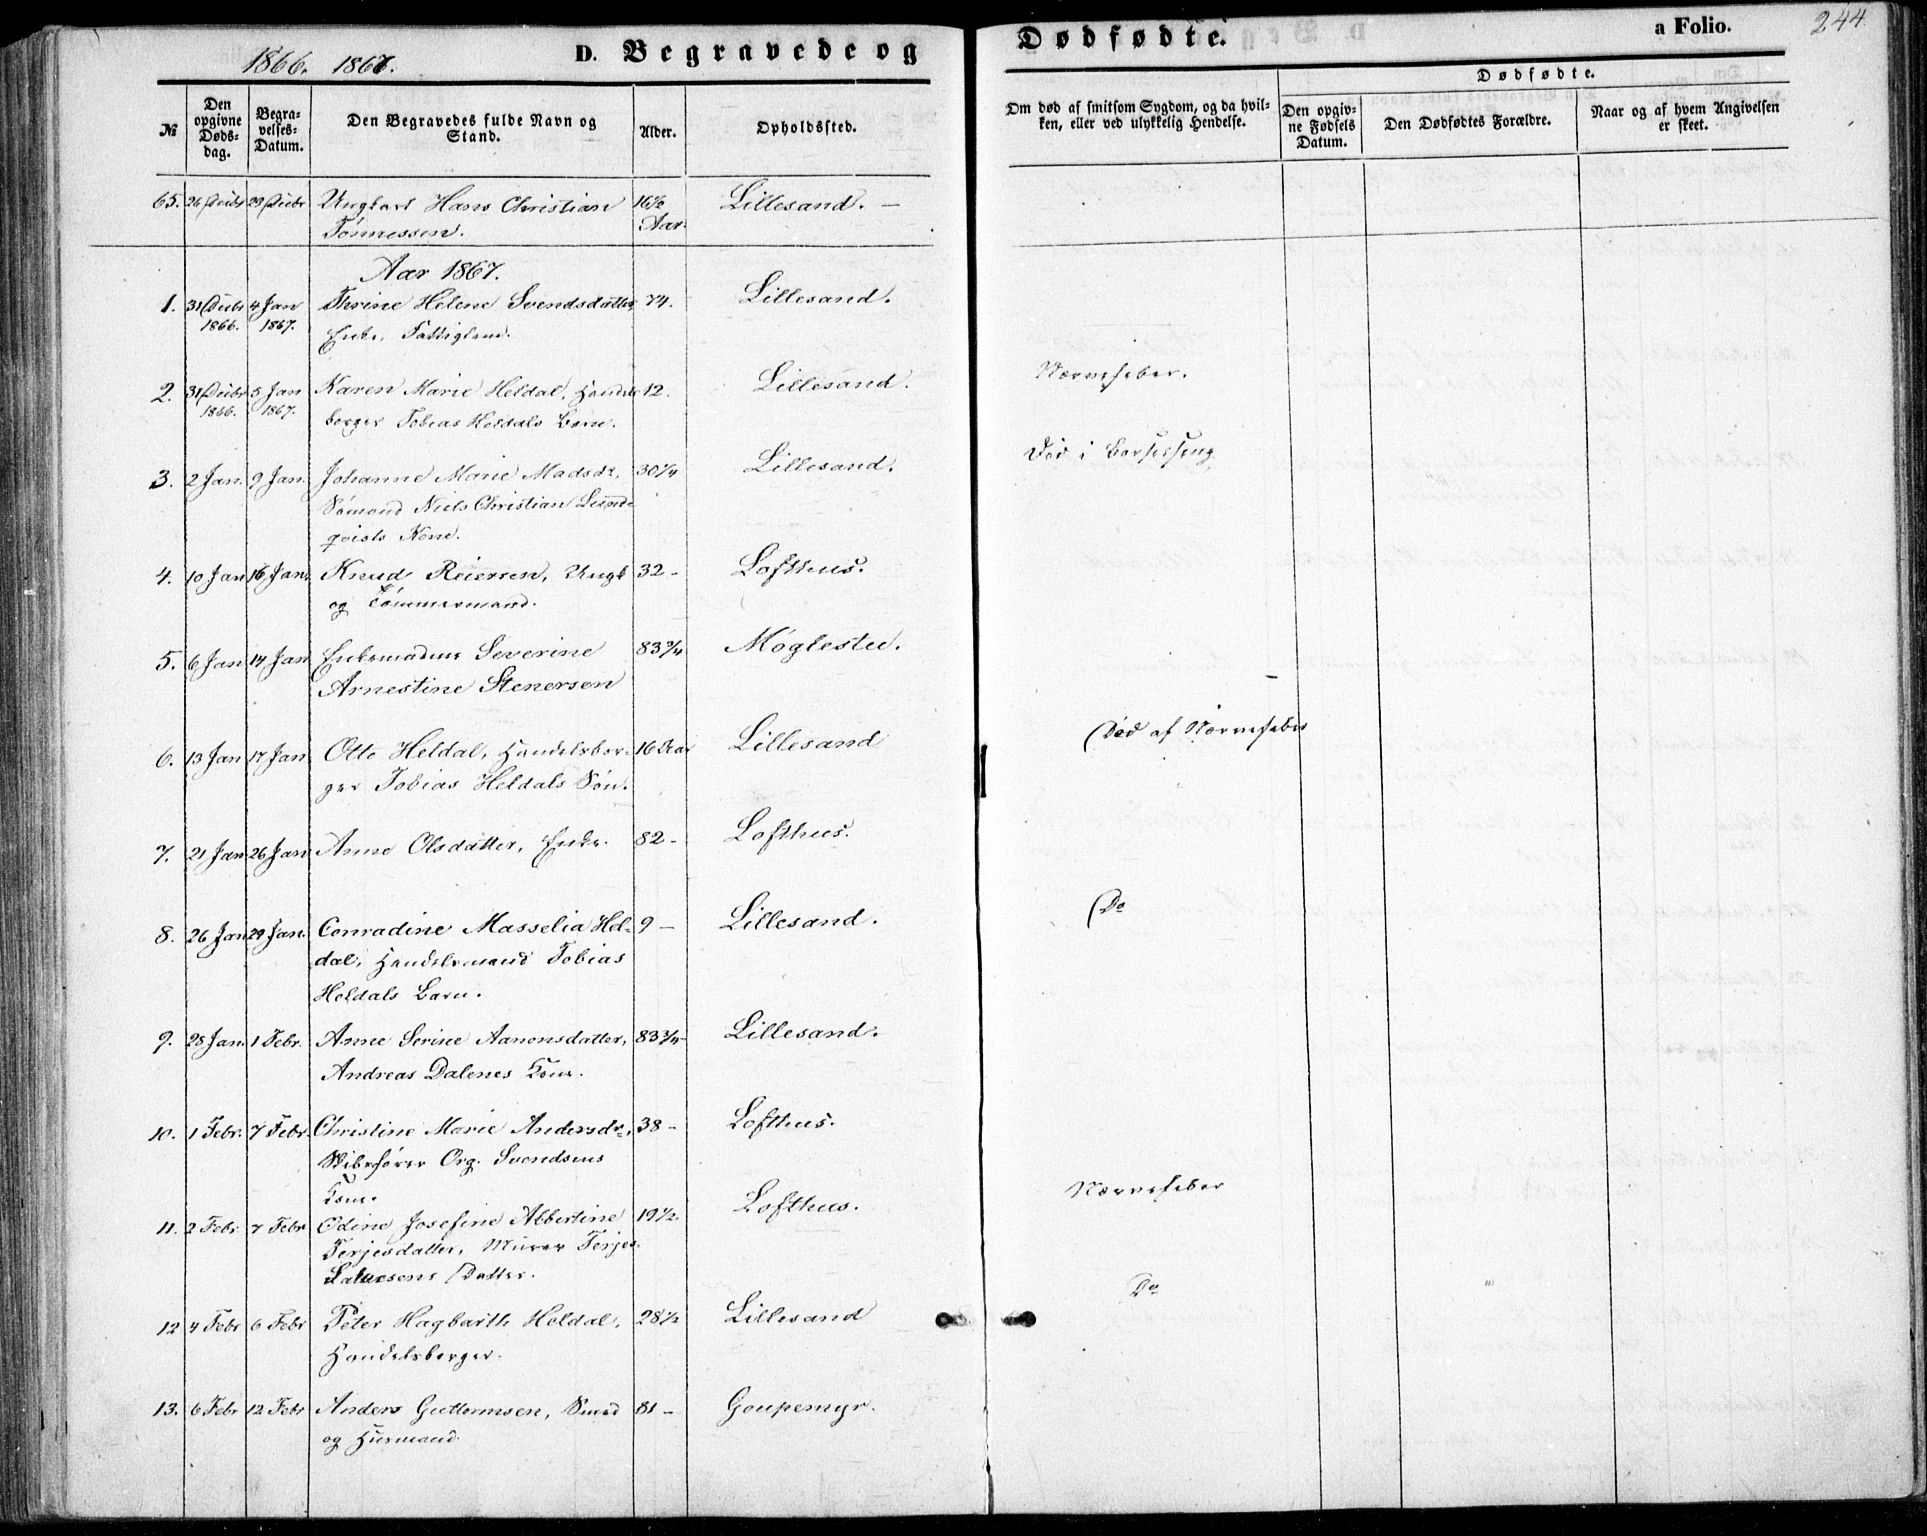 1866. 1867.
D. Begravede og Dødfødte.
a Folio.
244
№
Den opgivne Døds-dag.
Begra-velses-Datum.
Den Begravedes fulde Navn og Stand.
Alder.
Opholdssted.
Om død af smitsom Sygdom, og da hvil-ken, eller ved ulykkelig Hendelse.
Dødfødte.
Den opgiv-ne Fødsels Datum.
Den Dødfødtes Forældre.
Naar og af hvem Angivelsen er skeet.
65. 26 Decbr 29 Decbr Ungkarl Hans Christian 16½ Lillesand. —
Tönnessen. Aar.
Aar 1867.
1. 31 Decbr 4 Jan Thrine Helene Svendsdatter 74. Lillesand.
1866. 1867. Enke, Fattiglem.
2. 31 Decbr 5 Jan Karen Marie Heldal, Handels 12. Lillesand. Nervefeber.
1866. 1867. borger Tobias Heldals Barn.
3. 2 Jan. 9 Jan. Johanne Marie Madsdr. 30¼ Lillesand. Død i Barselseng
Sømand Niels Christian Lund-
qvists Kone.
4. 10 Jan 16 Jan Knud Reiersen, Ungk 32 - Lofthus.
og Tömmermand.
5. 6 Jan 14 Jan Enkemadme Severine 83¾ Møglestu.
Arnestine Stenersen
6. 13 Jan 17 Jan Otto Heldal, Handelsbor- 16 Aar Lillesand Død af Nervefeber
ger Tobias Heldals Søn.
7. 21 Jan 26 Jan Anne Olsdatter, Enke. 82 - Lofthus.
8. 26 Jan 29 Jan. Conradine Masselia Hel- 9 — Lillesand. Do
dal, Handelsmand Tobias
Heldals Barn.
9. 28 Jan. 1 Febr. Anne Serine Aanonsdatter, 83¾ - Lillesand.
Andreas Dalenes Kone.
10. 1 Febr. 7 Febr. Christine Marie Andersdr, 38 - Lofthus.
Skibsfører Org. Svendsens
Kone.
11. 2 Febr 7 Febr Odine Josefine Albertine 19½. Lofthus. Nervefeber
Terjesdatter, Murer Terjes
Salvesens Datter.
12 4 Febr 6 Febr Peter Hagbarth Heldal, 28½ Lillesand Do "
Handelsborger.
13. 6 Febr 12 Febr Anders Guttormsen, Smed 81 — Goupemyr.
og Huusmand.